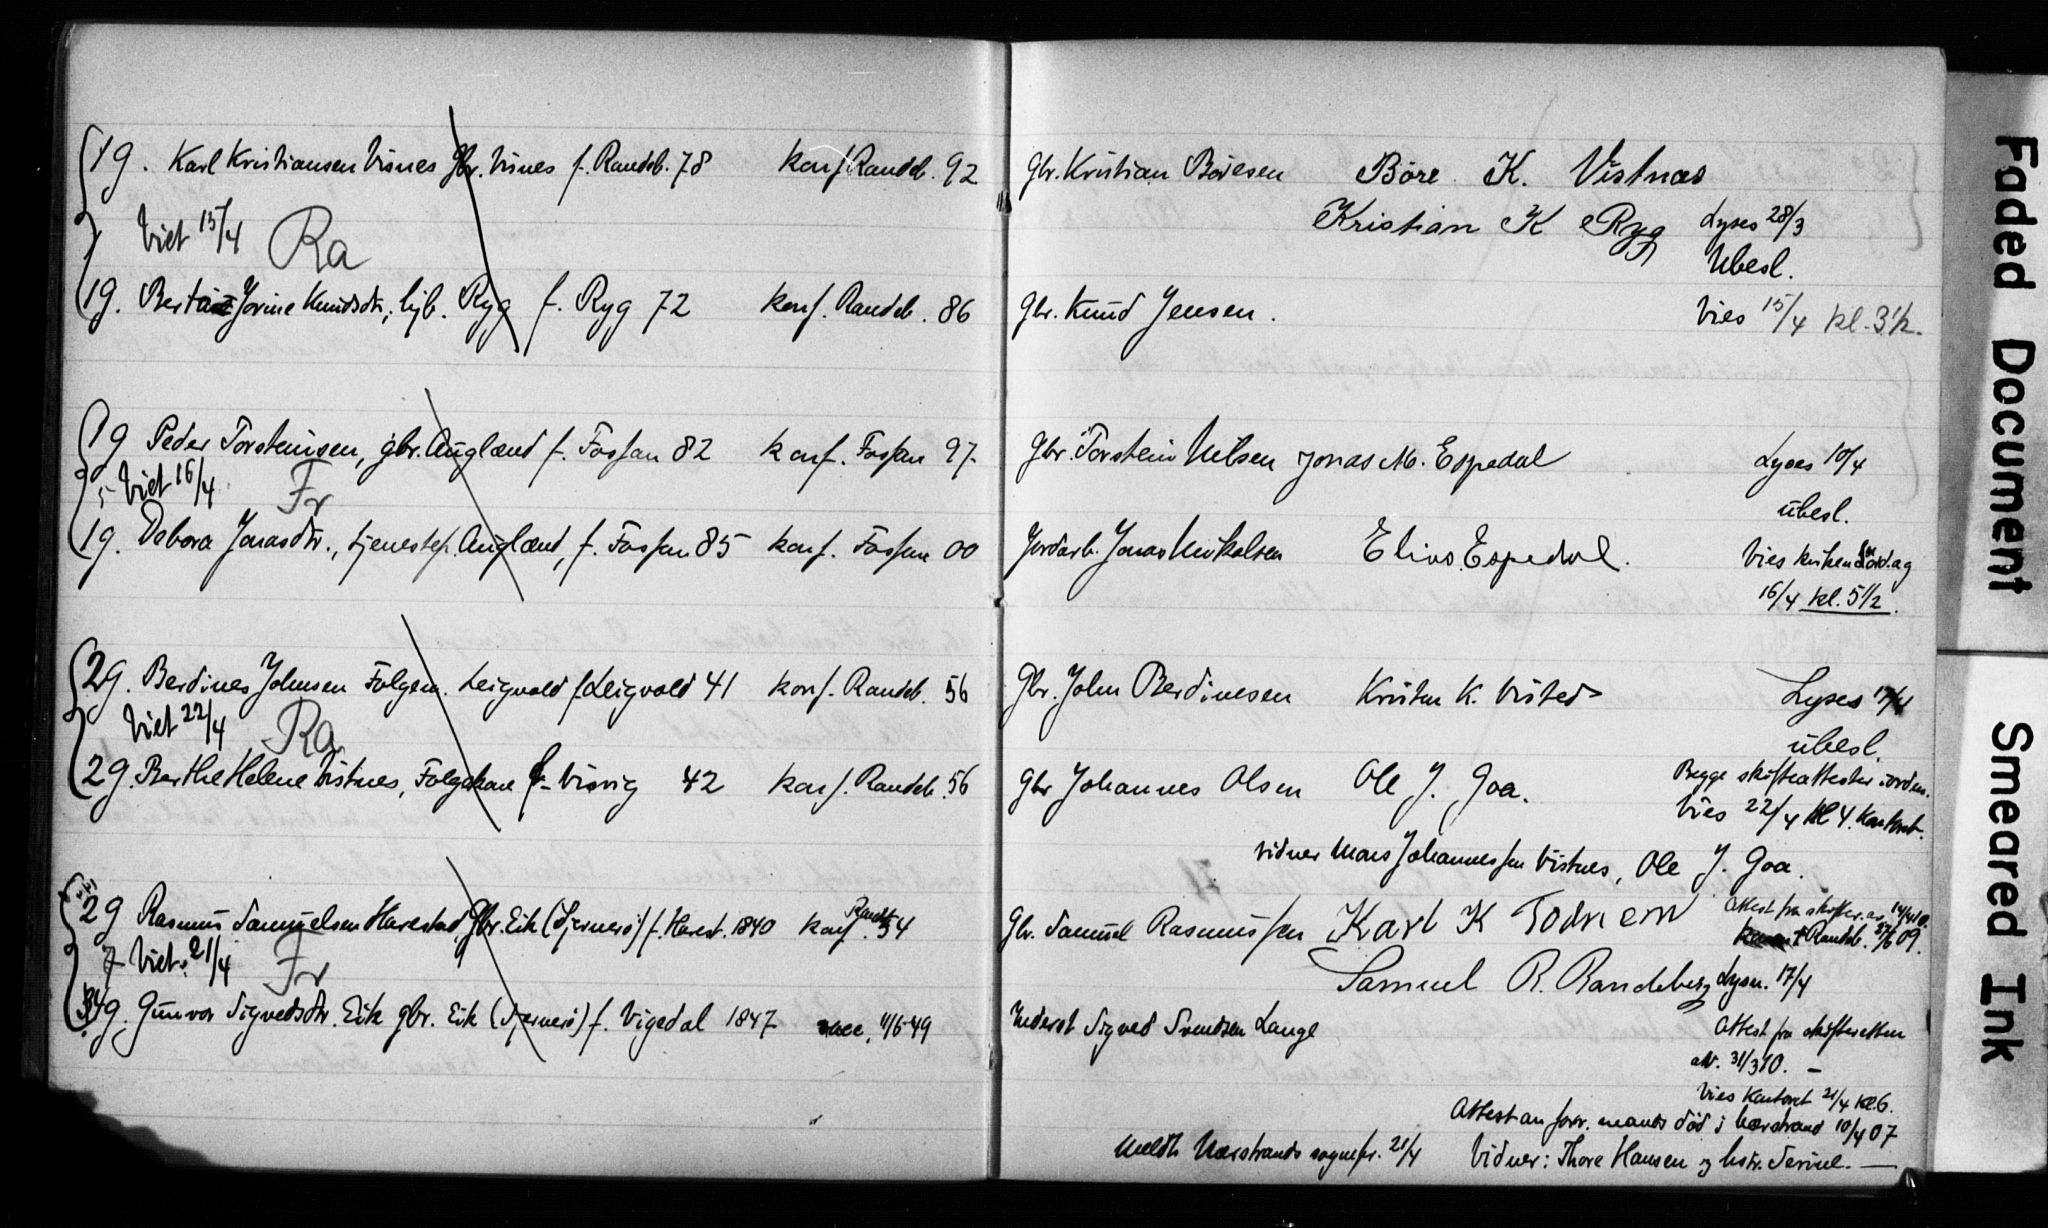 1g. Karl Kristiansen Visnes gbr. Visnes f. Randeb. 78 konf Randeb. 92 gbr. Kristian Børesen Børe K. Vistnæs
Viet 15/4 Ra Kristian K Ryg Lyses 28/3
Ubesl.
1g. Berta Jorine Knudsdtr., hjb. Ryg f. Ryg 72 konf. Randeb. 86 gbr. Knud Jensen. Vies 15/4 kl. 3½.
1g Peder Torsteinsen, gbr. Auglænd f. Fossan 82 konf. Fossan 97. Gbr. Torstein Nilsen Jonas M. Espedal Lyses 10/4
5 Viet 16/4 Fr ubesl.
1g. Debora Jonasdtr., tjenestep. Auglænd, f. Fossan 85 konf. Fossan 00 Jordarb. Jonas Mikalsen Elias Espedal. Vies kirken Lørdag
16/4 kl. 5½.
2g. Berdines Johnsen Folgem. Leigvold f Leigvold 41 konf. Randeb. 56 Gbr. John Berdinesen Kristen K. Visted Lyses 17/4
Viet 22/4 Ra ubesl.
2g. Berthe Helene Vistnes, Folgekone f. Visvig 42 konf. Randeb. 56 gbr Johannes Olsen Ole J. Goa. Begge skifteattester i orden.
Vies 22/4 kl 4. Kontoret.
vidner Mons Johannessen Vistnes, Ole J. Goa.
2g Rasmus Samuelsen Harestad, Gbr. Eik (Sjernerö) f. Harest. 1840 konf. Randeb 54 Gbr. Samuel Rasmussen Karl K Todnem Attest fra skifter. av 14/4 10.
7 Viet. 21/4 Fr Randeb. 27/6 09.
Samuel R. Randeberg Lysn. 17/4
3g. Gunvor Sigvedsdtr. Eik gbr. Eik (Sjernerö) f. Vigedal 1847 vacc. 11/6 49 Inderst Sigved Svendsen Lange Attest fra skifteretten
av. 31/3 10. —
Vies Kontoret 21/4 kl. 6.
Attest om forr. mands död i Nærstrand 10/4 07
Meldt Nærstrands sognepr. 21/4 Vidner: Thore Hansen og hstr. Serine. —
Faded Document
Smeared Ink